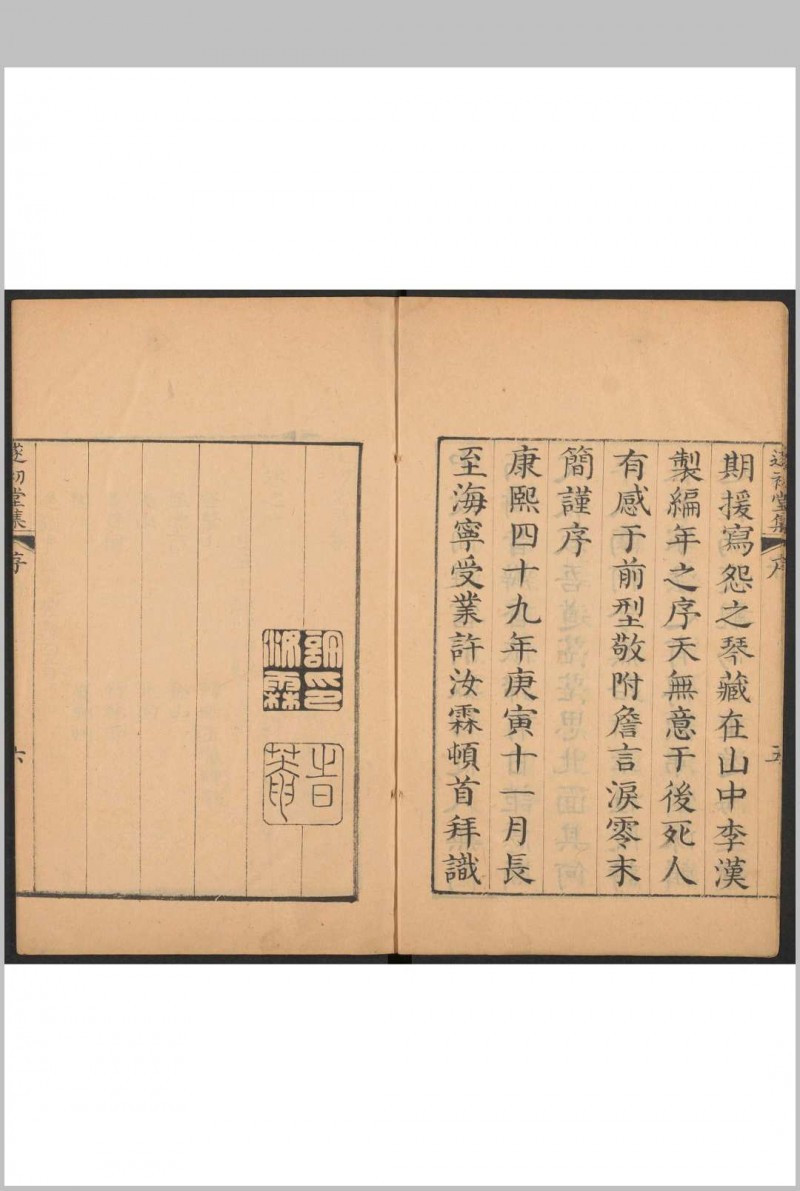 遂初堂集
序
五
期援寫怨之琴藏在山中李漢
製編年之序天無意于後死人
有感于前型敬附詹言淚零末
簡謹序
康熙四十九年庚寅十一月長
至海寧受業許汝霖頓首拜識
許汝霖印
遂初堂集
序
六